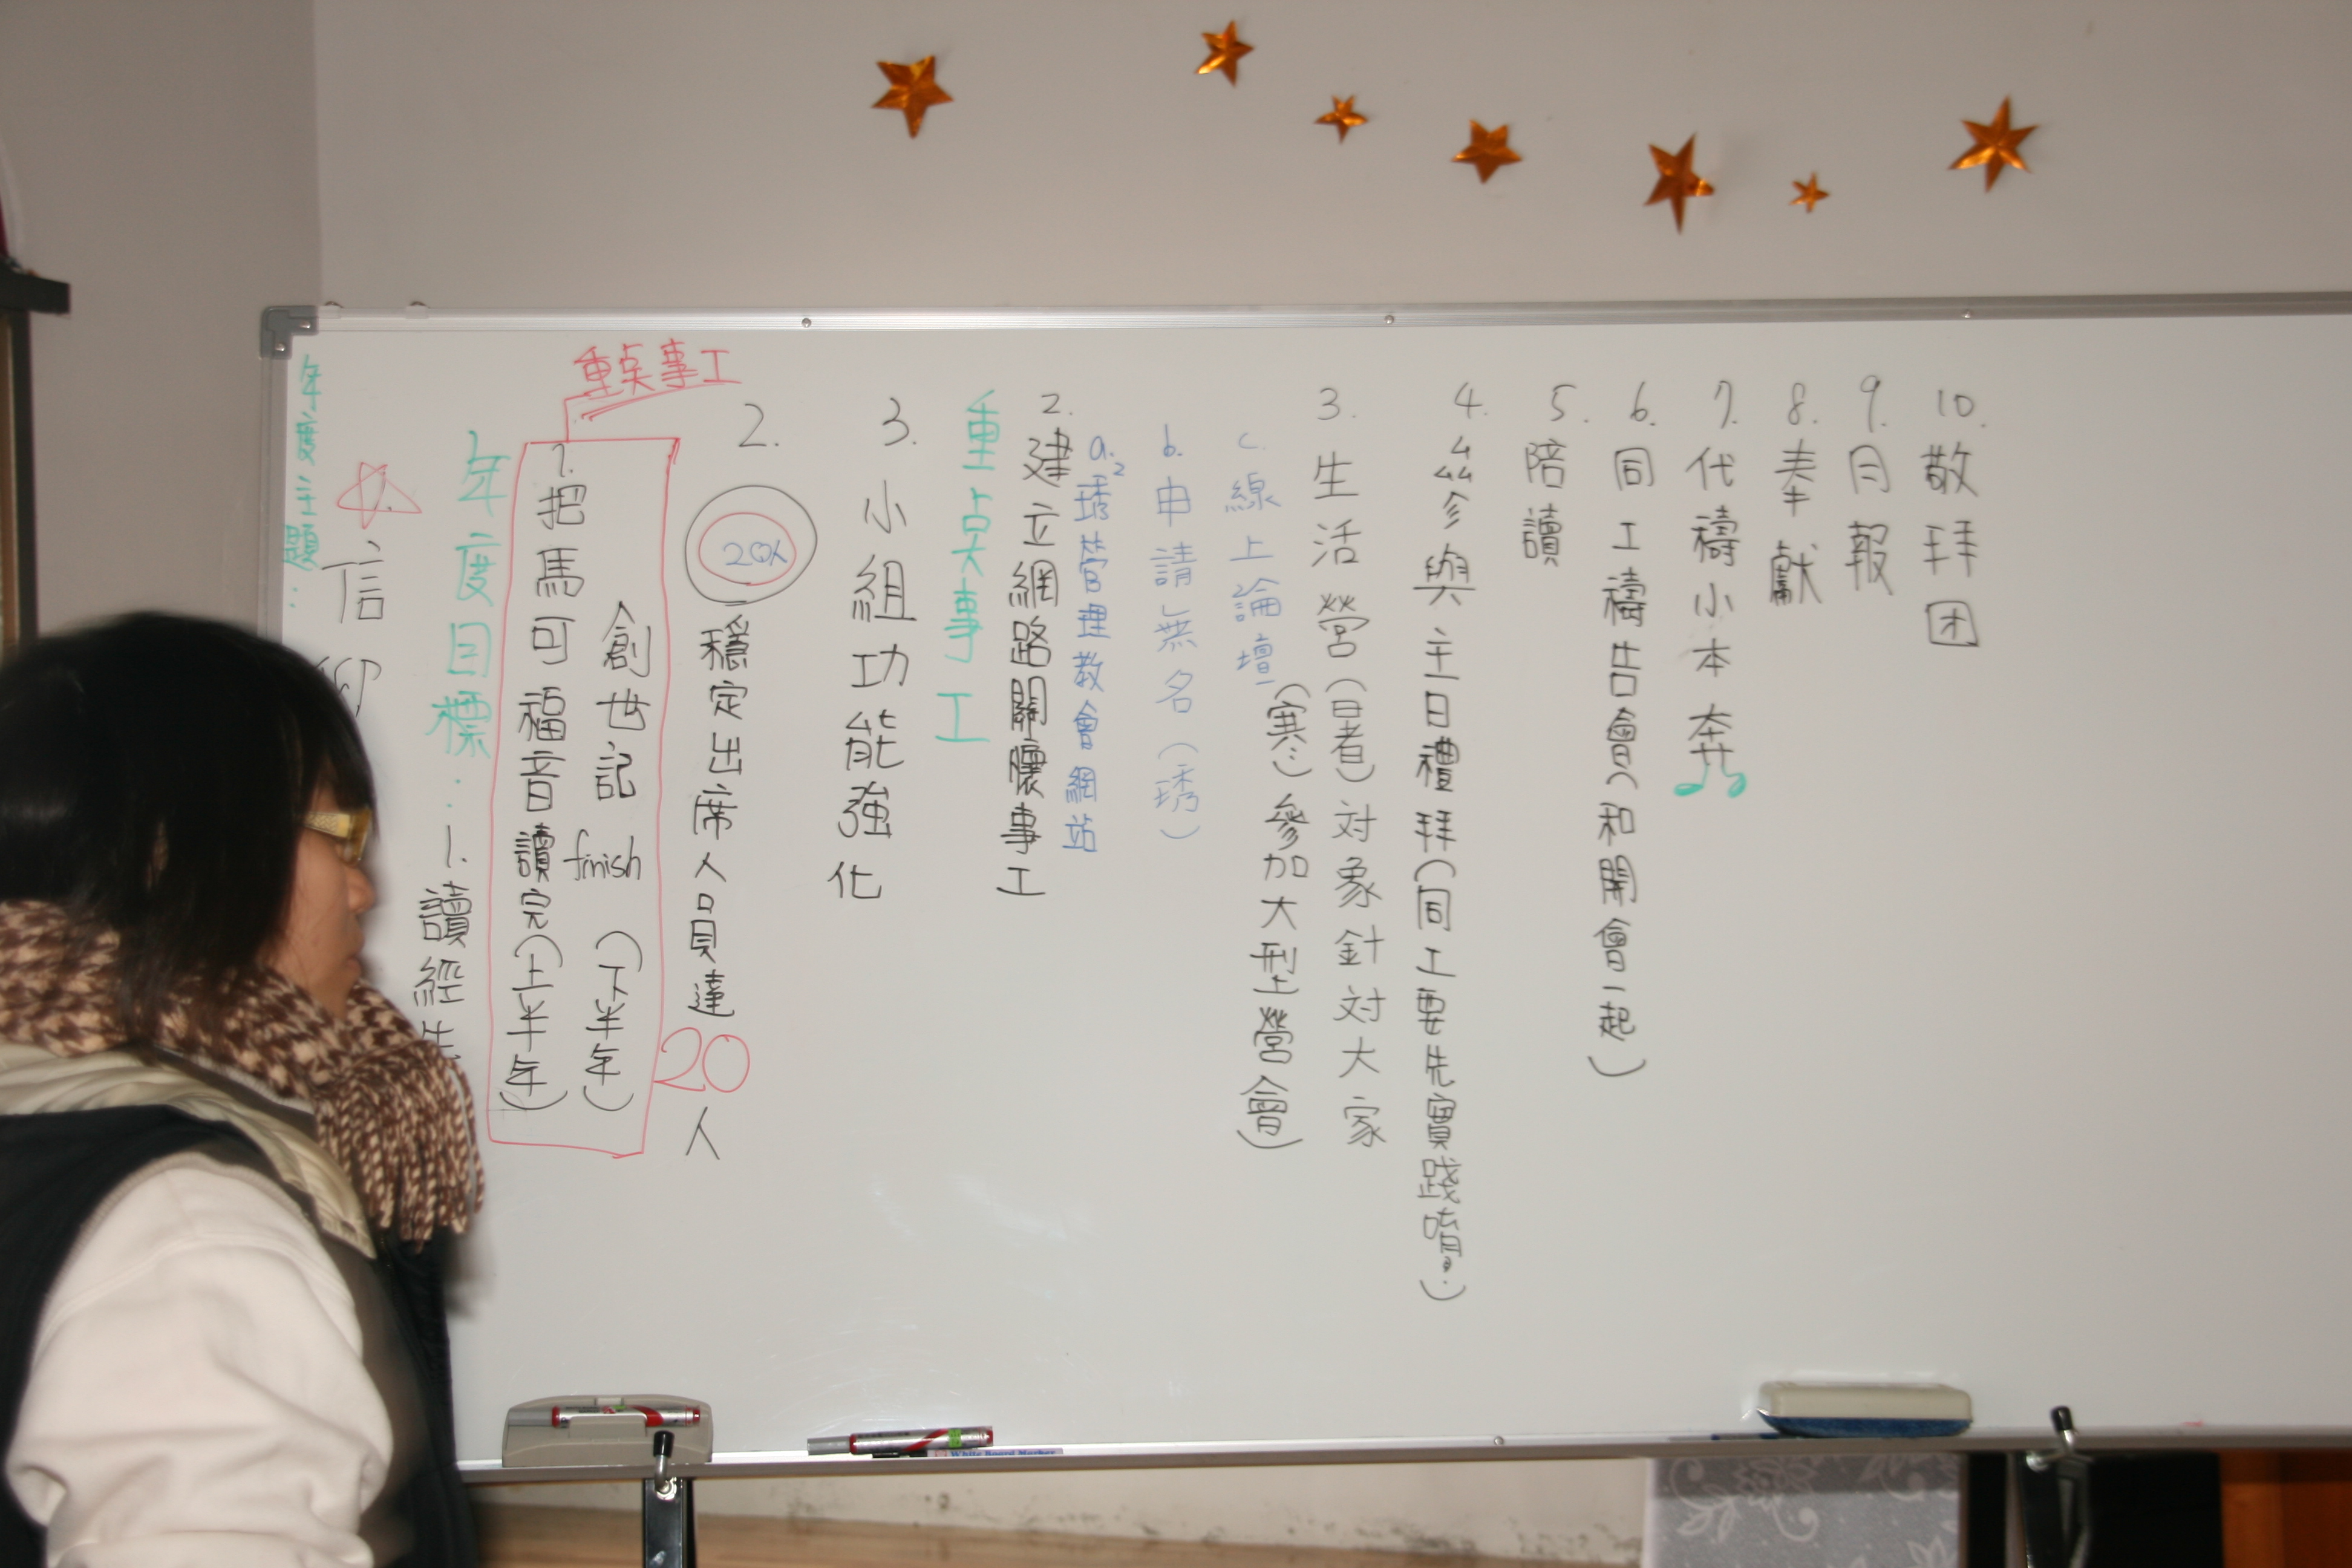 年度主題：
信
年度目標：1.讀經生
重点事工
1.把馬可福音讀完(上半年)
創世記finish(下半年)
2.
20人
穩定出席人員達20人
3.小組功能強化
重点事工
2.建立網路關懷事工
a.琇管理教會網站
b.申請無名(琇)
c.線上論壇
3.生活營(暑)対象針対大家
(寒:)參加大型營會)
4.參與主日禮拜(同工要先實踐唷!:)
5.陪讀
6.同工禱告會(和開會一起)
7.代禱小本奔
8.奉獻
9.月報
10.敬拜团
White Board Marker